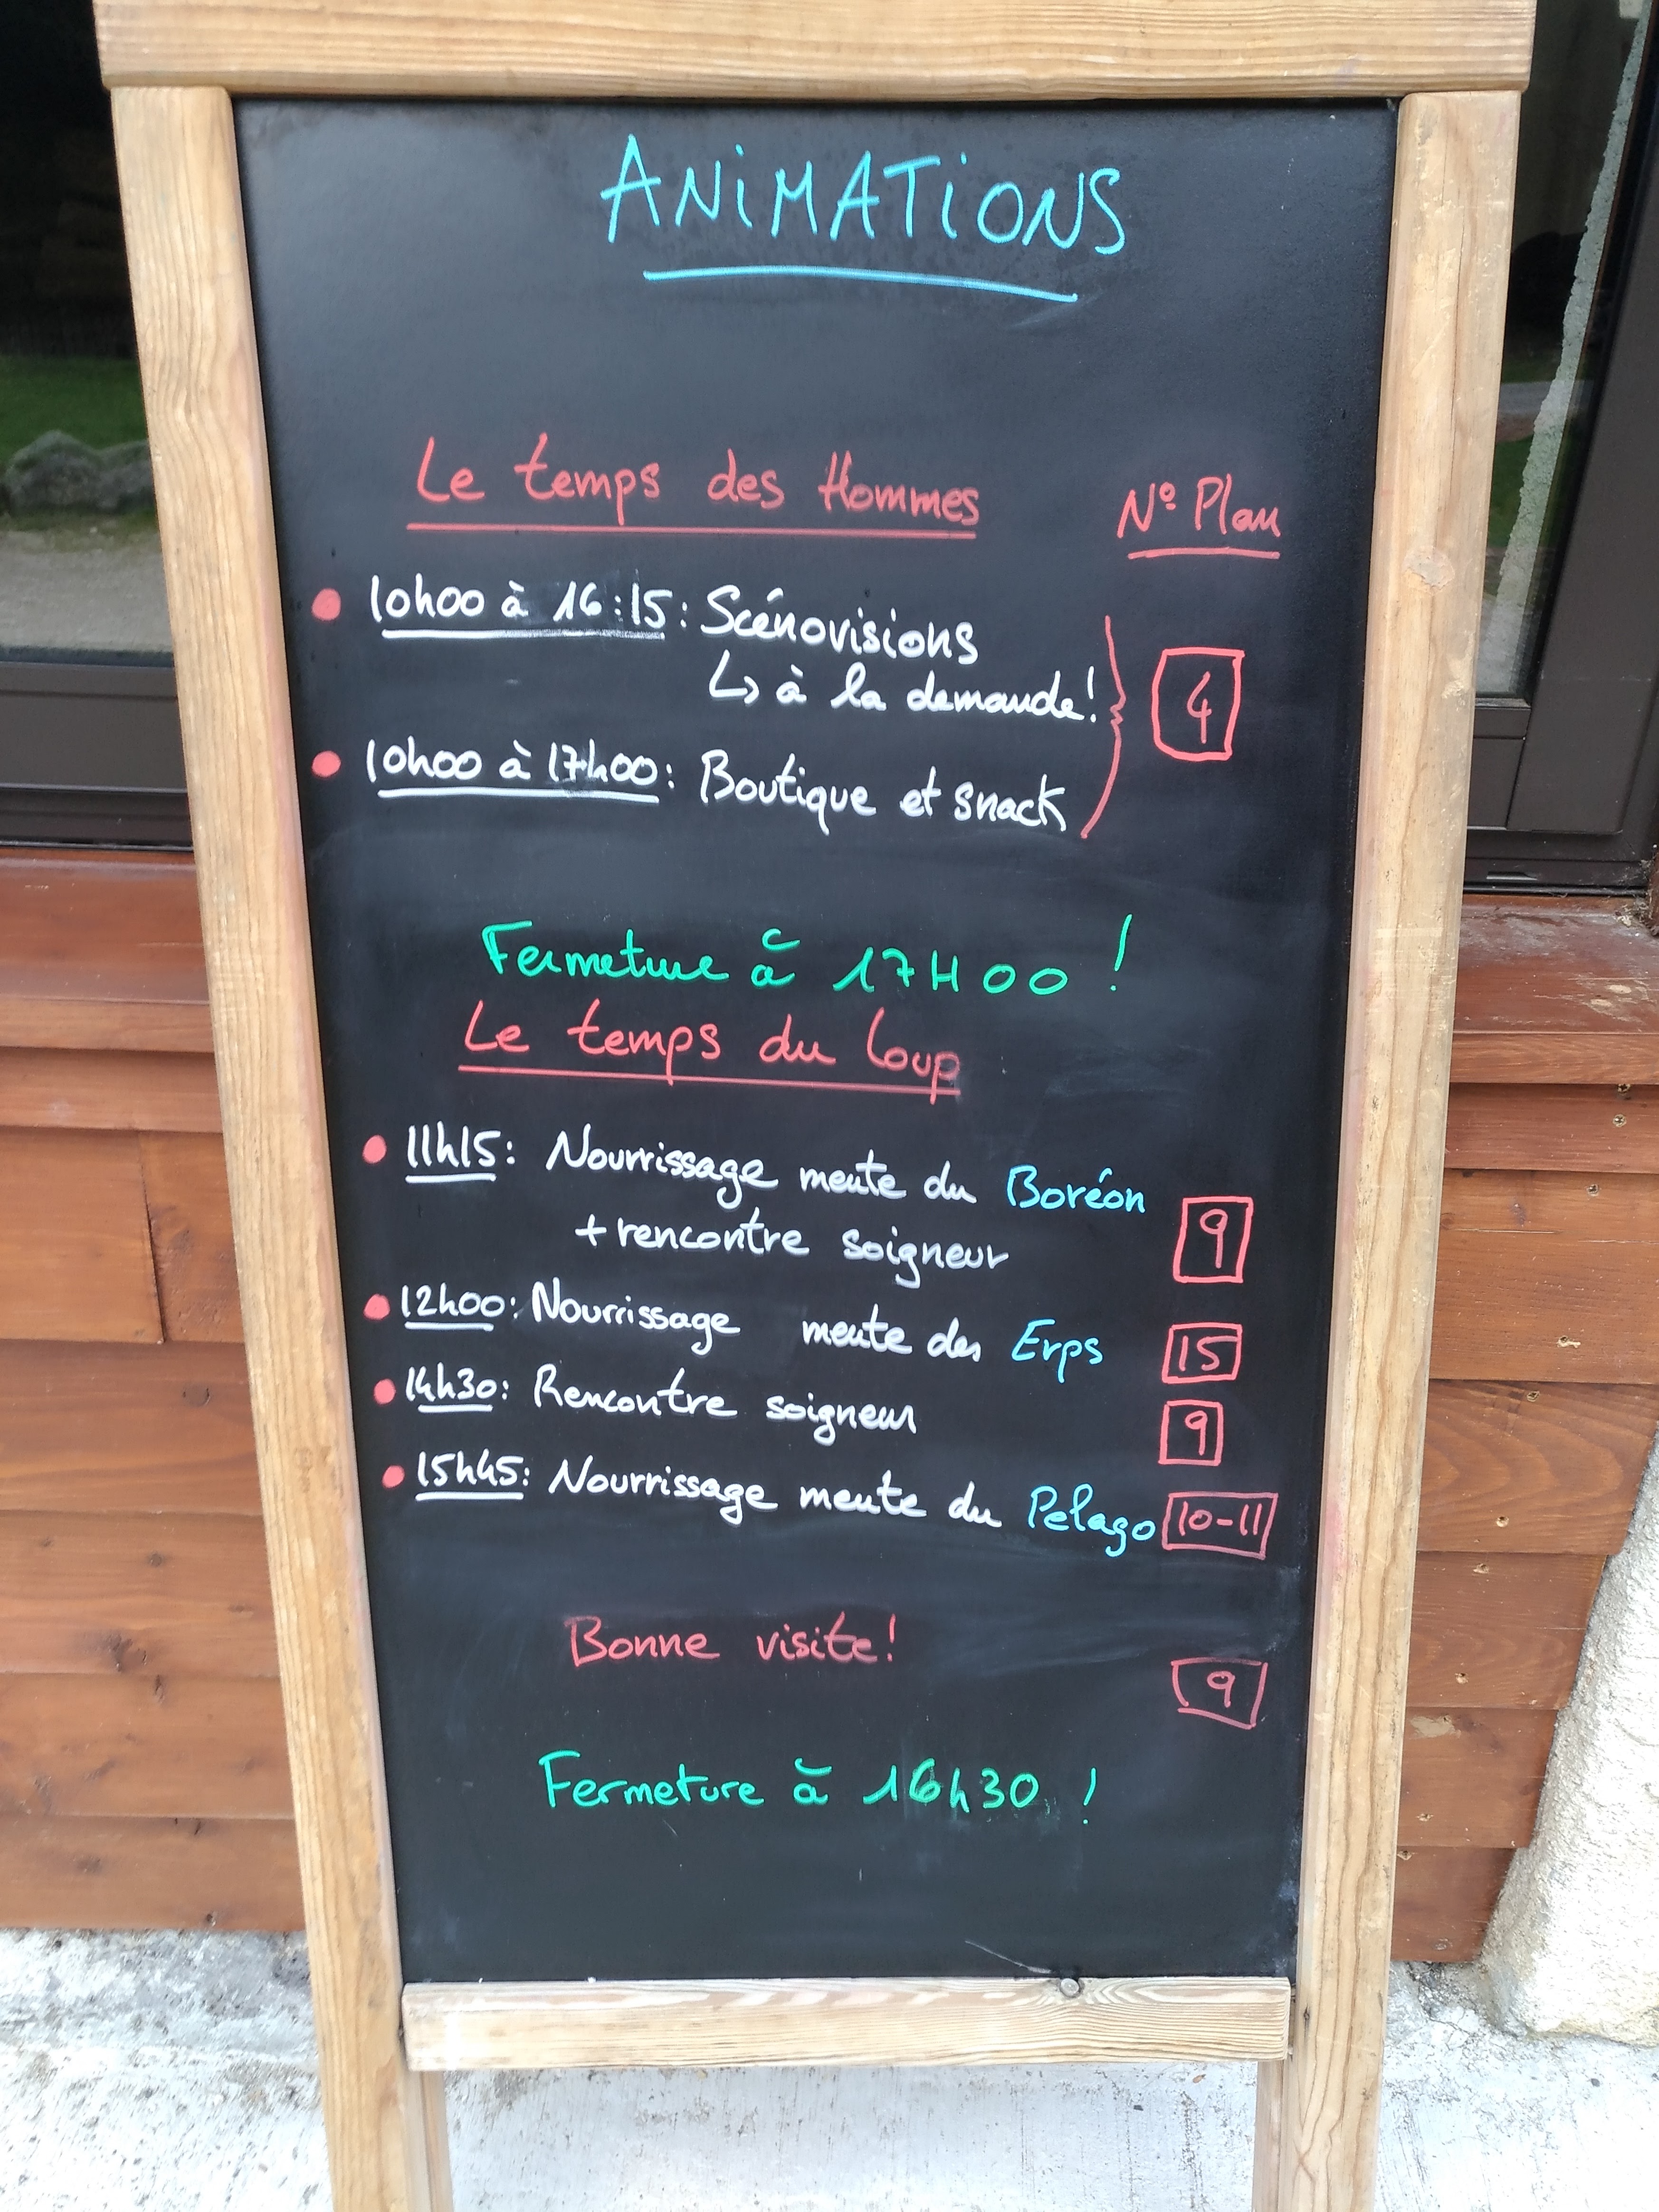 ANiMATiONS
Le temps des Hommes
N° Plan
10h00 à 16:15: Scénovisions
↳ à la demande!
4
10h00 à 17h00: Boutique et snack
Fermeture à 17H00 !
Le temps du loup
11h15: Nourrissage meute du Boréon
+ rencontre soigneur
9
12h00: Nourrissage meute des Erps 15
14h30: Rencontre soigneur 9
15h45: Nourrissage meute du Pelago 10-11
Bonne visite!
9
Fermeture à 16h30 !